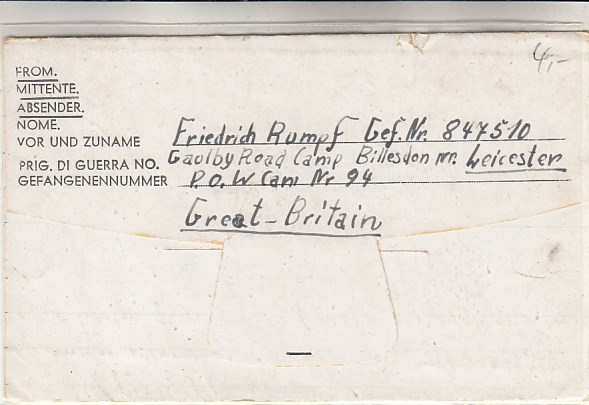 4,-
FROM.
MITTENTE.
ABSENDER.
NOME.
VOR UND ZUNAME Friedrich Rumpf Gef. Nr. 847510
PRIG. DI GUERRA NO. Gaulby Road Camp Billesdon nr. Leicester
GEFANGENENNUMMER P.O.W Cam Nr 94
Great-Britain